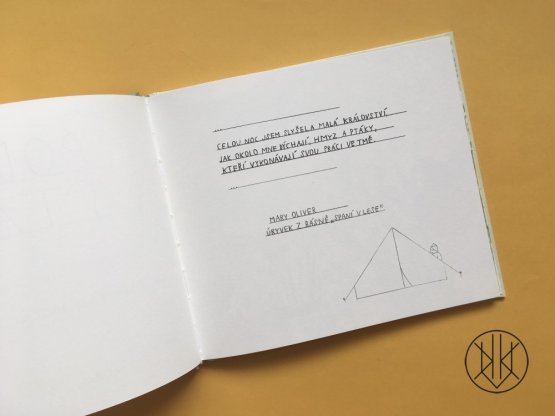 ....
CELOU NOC JSEM SLYŠELA MALÁ KRÁLOVSTVÍ,
JAK OKOLO MNE DÝCHAJÍ, HMYZ A PTÁKY,
KTEŘÍ VYKONÁVAJÍ SVOU PRÁCI VE TMĚ.
....
MARY OLIVER
ÚRYVEK Z BÁSNĚ „SPANÍ V LESE“